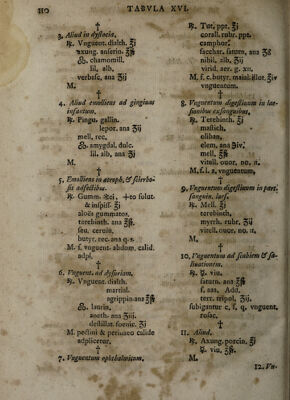 110 TABVLA XVI.
†
3. Aliud in dystocia.
℞. Vnguent. dialth. ℥i
axung. anserin. ℥ß
ol. chamomill.
lil. alb.
verbasc. ana ʒij
M.
†
4. Aliud emolliens ad gingivas
infantum.
℞. Pingu. gallin.
lepor. ana ʒij
mell. rec.
ol. amygdal. dulc.
lil. alb. ana ʒi
M.
†
5. Emolliens in atroph. & sclerho-
sis adfectibus.
℞. Gumm. 
& inspiss. ℥i
aloës gummatos.
terebinth. ana ℥ß.
seu. ceruin.
butyr. rec. ana q. s.
M. f. vnguent. abdom. calid.
adpl.
†
6. Vnguent. ad dysuriam.
℞. Vnguent. dialth.
martial.
agrippin. ana ℥ß.
ol. laurin.
aneth. ana ʒij.
destillat. foenic. ʒi
M. pectini & perinaeo calide
adplicetur.
†
7. Vnguentum ophthalmicum.
℞. Tut. ppt. ʒi
corall. rubr. ppt.
camphor.
sacchar. saturn. ana ʒß
nihil. alb. ʒij
virid. aer. g. xii.
M. f. c. butyr. maial. illot. ℥iv
vnguentum.
†
8. Vnguentum digestiuum in lae-
sionibus exsanguibus.
℞. Terebinth. ℥i
mastich.
oliban.
elem. ana ʒiv.
mell. ℥ß
vitell. ouor. no. ii.
M. f. l. a. vnguentum.
†
9. Vnguentum digestiuum in part.
sanguin. laes.
℞. Mell. ℥i
terebinth.
myrrh. rubr. ʒij
vitell. ouor. no. ii.
M.
†
10. Vnguentum ad scabiem &
℞. vin.
saturn. ana ℥ß
f. aas. Add.
terr. tripol. ʒij.
subigantur c. s. q. vnguent.
rosac.
†
11. Aliud.
℞. Axung. porcin. ℥i
vin. ℥ß.
M.
12. Vn-